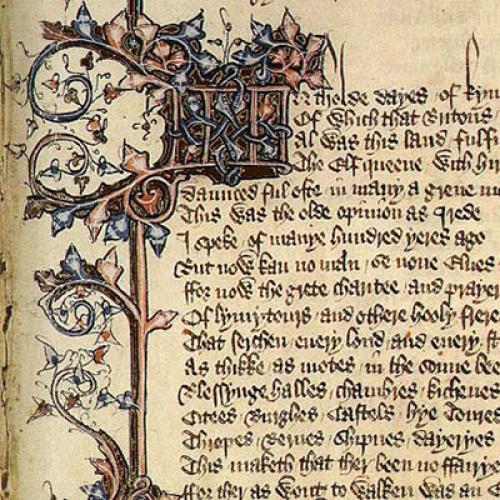 In tholde dayes of Kyn
Of which that Britons
Al was this land fulfi
The Elf queene with hir
Daunced ful ofte in many a grene m
This was the olde opinion as I rede
I speke of manye hundred yeres ago
But now kan no man se none Elues
ffor now the grete charitee and prayer
Of lymytours and othere hooly frere
That serchen euery lond and euery st
As thikke as motes in the sonne bee
Blessynge halles chambres kichenes
Citees Burghes Castels hye Toures
Thropes Bernes Shipnes dayeryes
This maketh that ther been no ffairye
ffor ther as wont to walken was an E